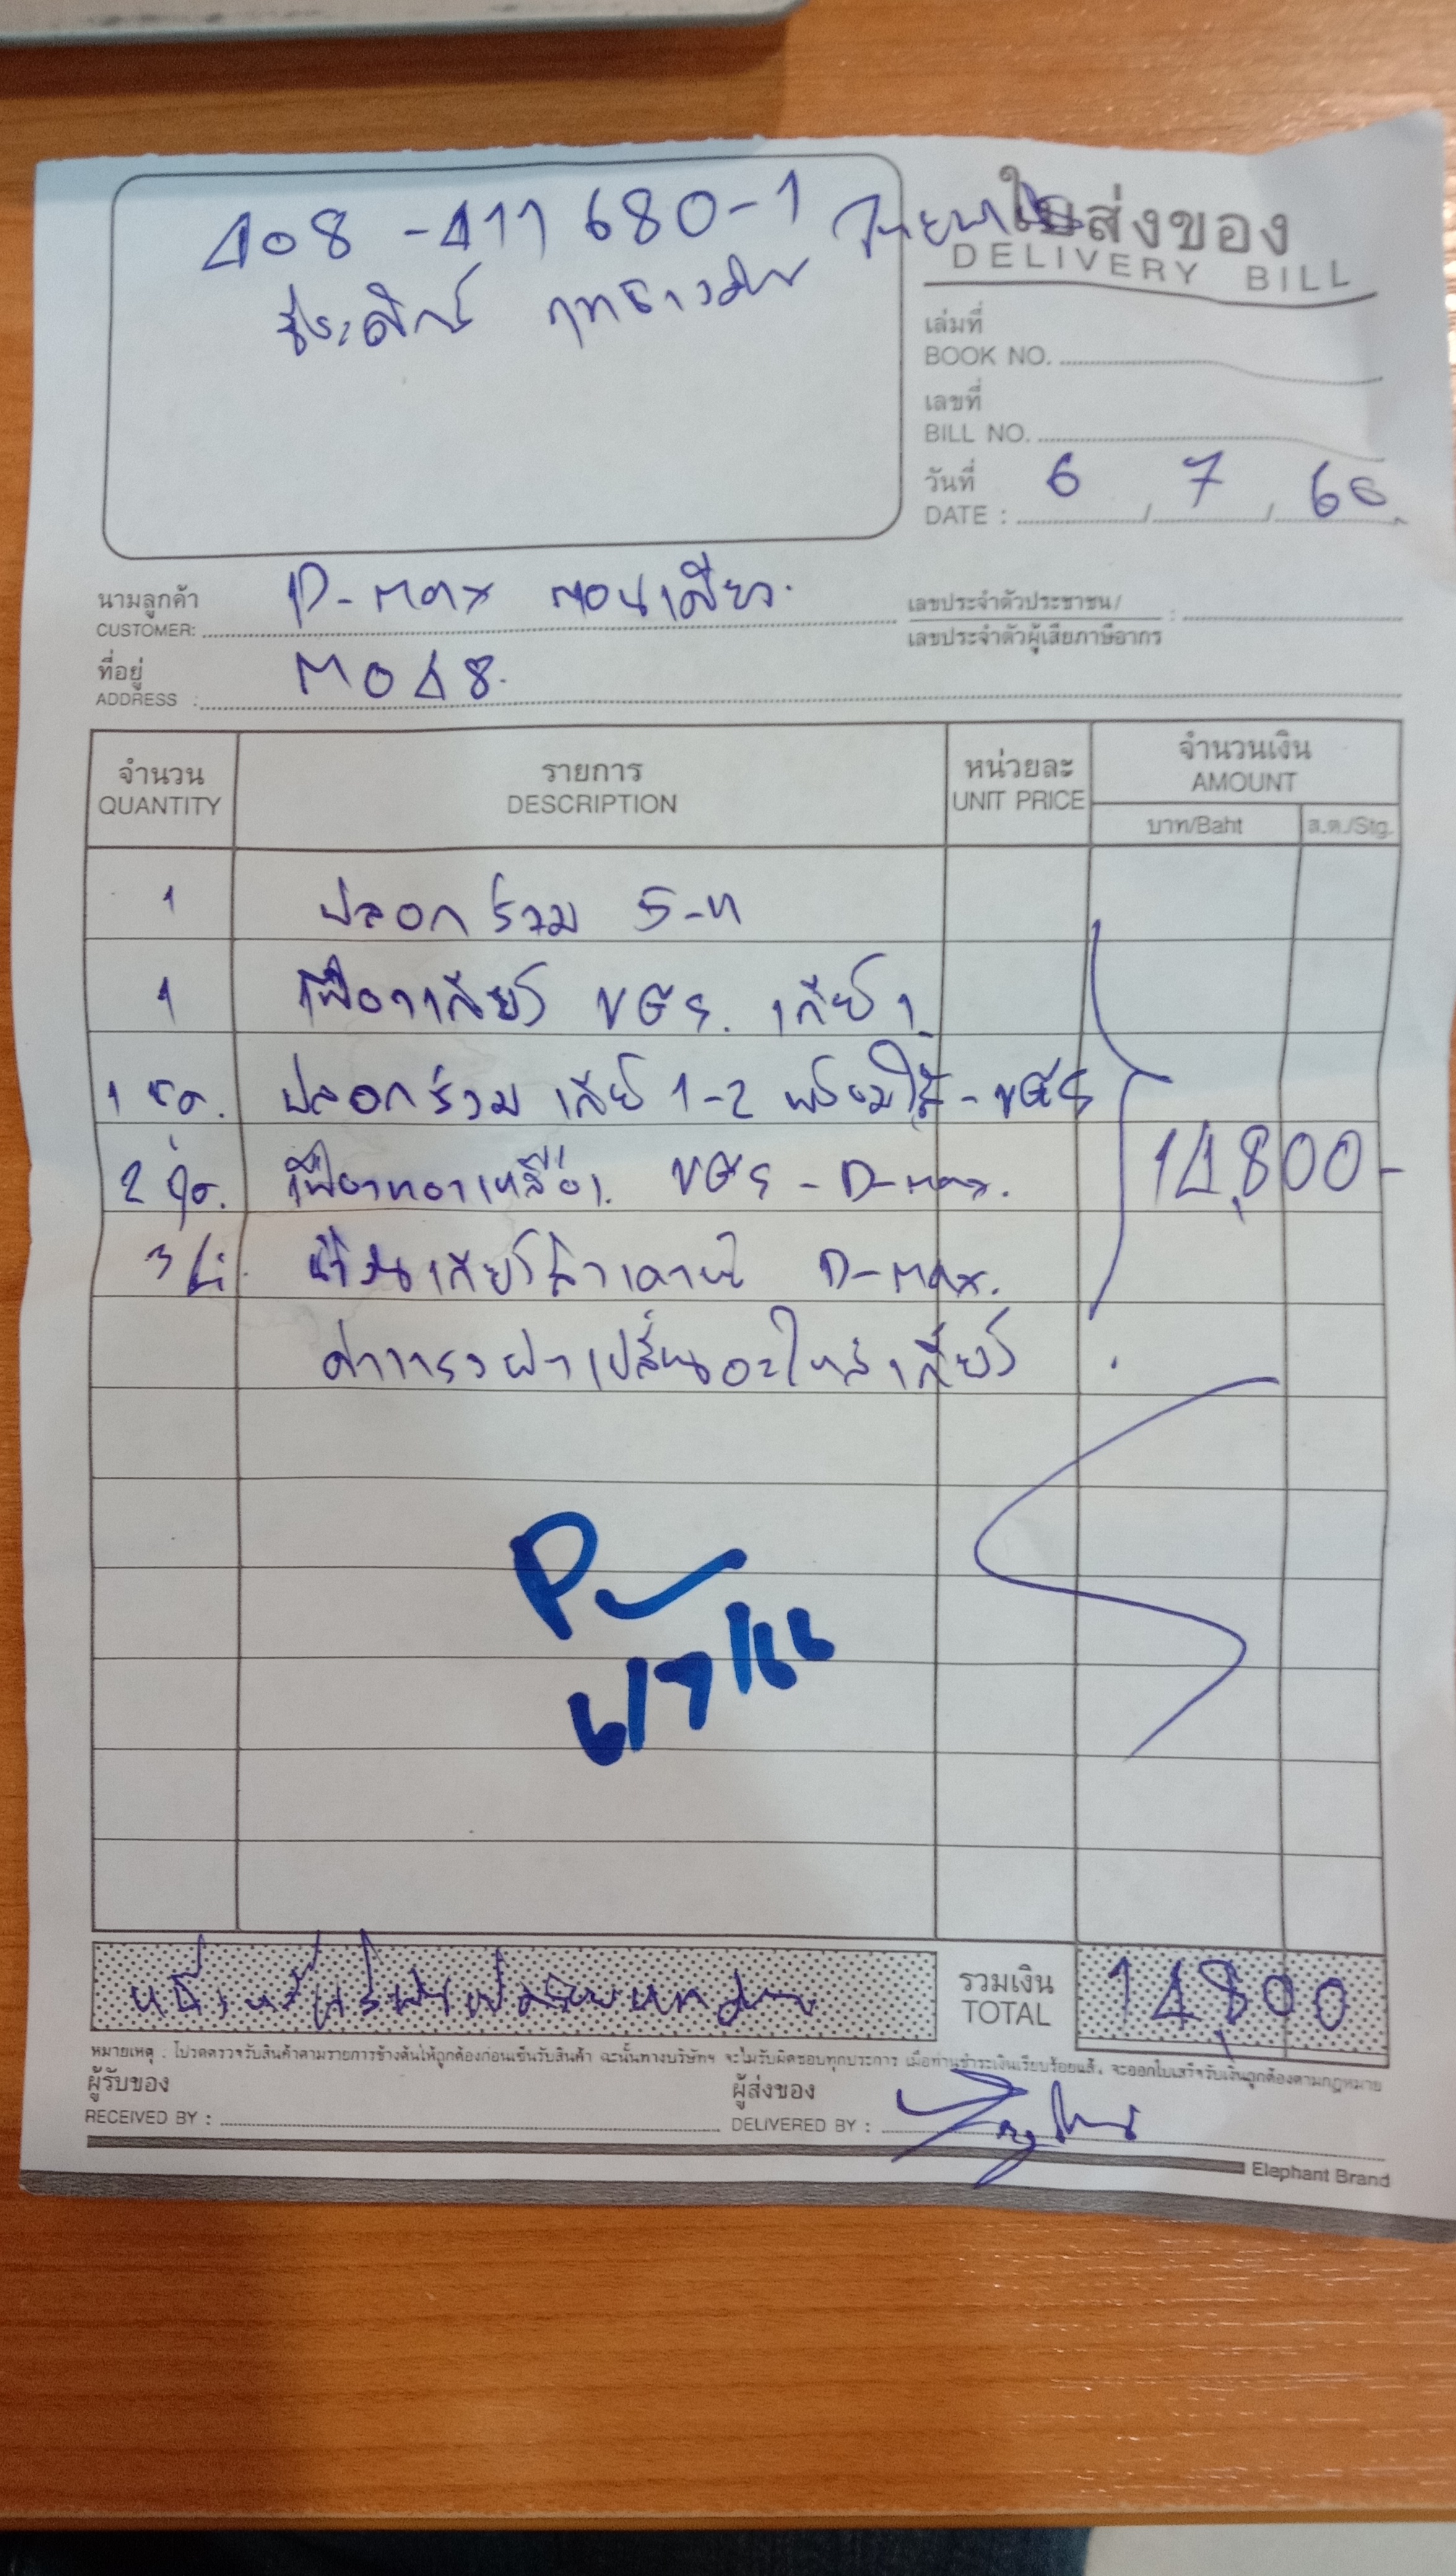 408-411680-1
ใบส่งของ
DELIVERY BILL
เล่มที่
BOOK NO.
เลขที่
BILL NO.
วันที่
DATE : 6 / 7 / 66
นามลูกค้า
CUSTOMER: D-max ตอนเดียว.
เลขประจำตัวประชาชน/
เลขประจำตัวผู้เสียภาษีอากร :
ที่อยู่
ADDRESS : M048.
จำนวน รายการ หน่วยละ จำนวนเงิน
QUANTITY DESCRIPTION UNIT PRICE AMOUNT
บาท/Baht ส.ต./Stg.
1 ปลอกร่วม 5-ท
1 เฟืองเกียร์ VGS. เกียร์ 1
1 ชุด. ปลอกร่วม เกียร์ 1-2 พร้อมไส้ - VGS
2 ทองเหลือง VGS - D-max. 14,800-
3 น้ำมันเกียร์ D-max.
ค่าแรงผ่าเปลี่ยนอะไหล่เกียร์
6/7/66
รวมเงิน
TOTAL 14,800
หมายเหตุ : โปรดตรวจรับสินค้าตามรายการข้างต้นให้ถูกต้องก่อนเซ็นรับสินค้า ฉะนั้นทางบริษัทฯ จะไม่รับผิดชอบทุกประการ เมื่อท่านชำระเงินเรียบร้อยแล้ว จะออกใบเสร็จรับเงินถูกต้องตามกฎหมาย
ผู้รับของ
RECEIVED BY :
ผู้ส่งของ
DELIVERED BY :
Elephant Brand